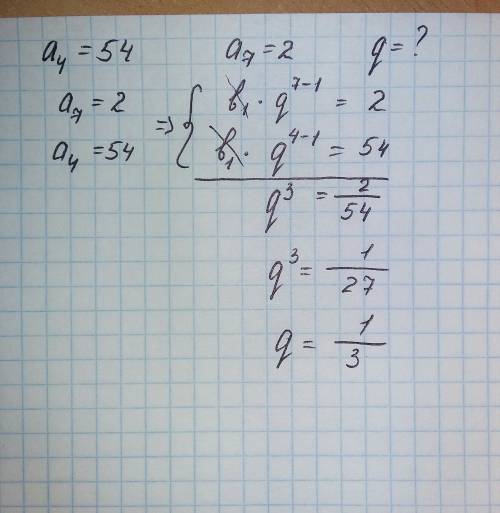 a₄ = 54 a₇ = 2 q = ?
a₇ = 2 => { b₁ · q⁷⁻¹ = 2
a₄ = 54 b₁ · q⁴⁻¹ = 54
q³ = 2/54
q³ = 1/27
q = 1/3